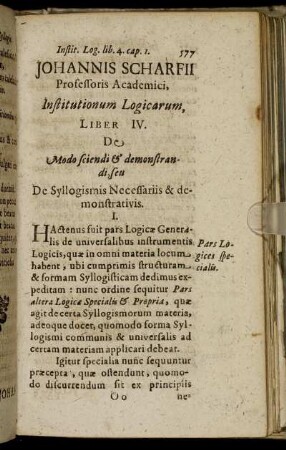 Instit. Log. lib. 4. cap. 1. 577
JOHANNIS SCHARFII
Professoris Academici,
Institutionum Logicarum,
LIBER IV.
De
Modo sciendi & demonstran-
di, seu
De Syllogismis Necessariis & de-
monstrativis.
I.
HActenus fuit pars Logicæ Genera-
lis de universalibus instrumentis
Logicis, quæ in omni materia locum
habent, ubi cumprimis structuram
& formam Syllogisticam dedimus ex-
peditam: nunc ordine sequitur Pars
altera Logicæ Specialis & Propria, quæ
agit de certa Syllogismorum materia,
adeoque docet, quomodo forma Syl-
logismi communis & universalis ad
certam materiam applicari debeat.
Pars Lo-
gices spe-
cialis.
Igitur specialia nunc sequuntur
præcepta, quæ ostendunt, quomo-
do discurrendum sit ex principiis
Oo ne-